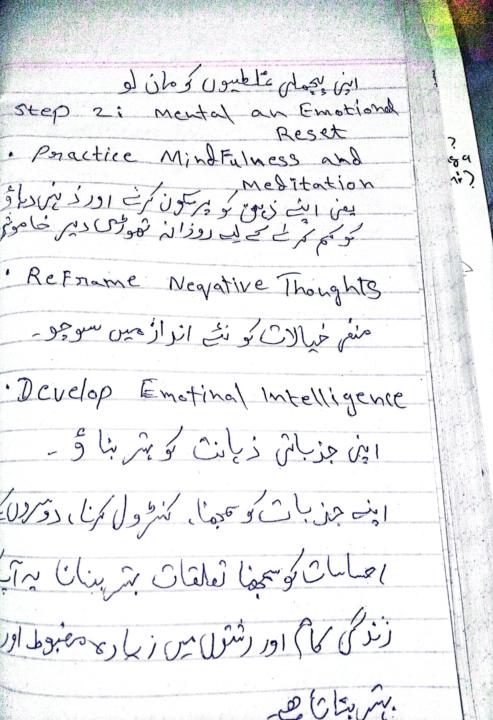 اپنی پچھلی غلطیوں کو مان لو
Step 2: Mental an Emotional
Reset
• Practice Mindfulness and
Meditation
یعنی اپنے ذہن کو پرسکون کرنے اور ذہنی دباؤ
کو کم کرنے کے لیے روزانہ تھوڑی دیر
• Reframe Negative Thoughts
منفی خیالات کو نئے انداز میں سوچو۔
• Develop Emotinal Intelligence
اپنی جذباتی ذہانت کو بہتر بناؤ ۔
اپنے جذبات کو سمجھنا، کنٹرول کرنا، دوسروں
احساسات کو سمجھنا تعلقات بہتر بنانا یہ
زندگی کام اور رشتوں میں زیادہ مضبوط اور
بہتر بناتا ہے